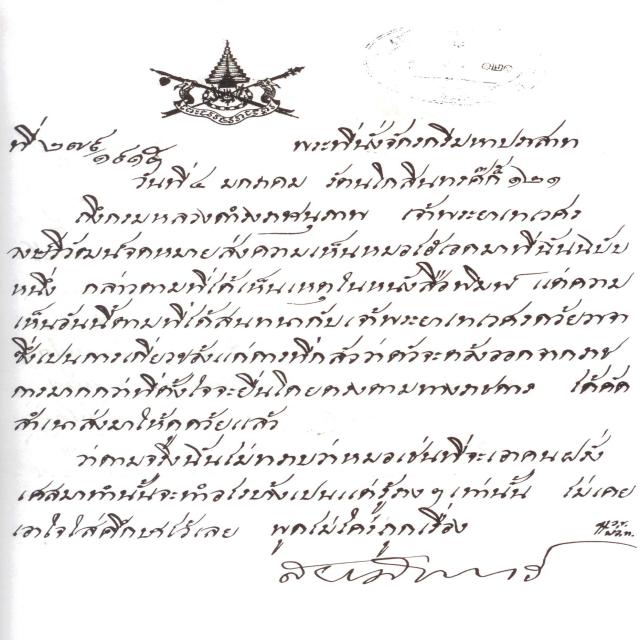 ที่ ๒๗๕/๑๘๑๕ พระที่นั่งจักรกรีมหาปราสาท
วันที่ ๔ มกราคม รัตนโกสินทรศักดิ์ ๑๒๑
ถึงกรมหลวงดำรงราชานุภาพ เจ้าพระยาเทเวศร
วงษ์วิวัฒน์จดหมายส่งความเห็นหมอไฮเอดมาที่ฉันฉบับ
หนึ่ง กล่าวตามที่ได้เห็นเหตุในหนังสือพิมพ์ แต่ความ
เห็นอันนี้ตามที่ได้สนทนากับเจ้าพระยาเทเวศรด้วยวาจา
ซึ่งเปนการเกี่ยว แก่การที่กลัวว่าตัวจะต้องออกจากราช
การมากกว่าที่ตั้งใจจะยื่นโดยตรงตามทางราชการ ได้คัด
สำเนาส่งมาให้ดูด้วยแล้ว
ว่าตามจริงฉันไม่ทราบว่าหมอเช่นที่จะเอาคนฝรั่ง
เศสมาทำนั้นจะทำอไรบ้างเปนแต่รู้ราง ๆ เท่านั้น ไม่เคย
เอาใจใส่ศึกษาไว้เลย พูดไม่ใคร่ถูกเรื่อง
สยามินทร์